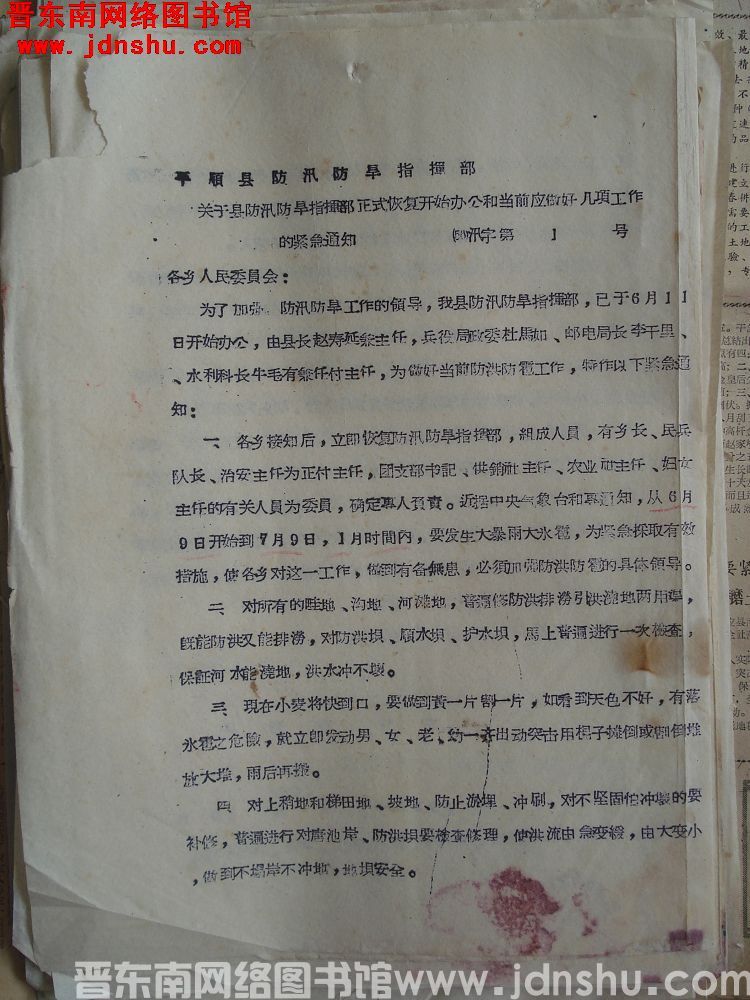 晋东南网络图书馆
www.jdnshu.com
平順县防汛防旱指揮部
关于县防汛防旱指揮部正式恢复开始办公和当前应做好几項工作
的紧急通知 汛字第 1 号
各乡人民委員会：
为了加强 防汛防旱工作的領导，我县防汛防旱指揮部，已于6月11
日开始办公，由县长赵寿延兼主任，兵役局政委杜馬如、邮电局长李干里、
、水利科长牛毛有兼任付主任，为做好当前防洪防雹工作，特作以下紧急通
知：
一、各乡接知后，立即恢复防汛防旱指揮部，組成人員，有乡长、民兵
队长、治安主任为正付主任，团支部书記、供銷社主任、农业社主任、妇女
主任的有关人員为委員，确定專人負責。近据中央气象台和專通知，从6月
9日开始到7月9日，1月时間內，要发生大暴雨大氷雹，为紧急採取有效
措施，使各乡对这一工作，做到有备無患，必須加强防洪防雹的具体領导。
二、对所有的畦地、沟地、河滩地，普遍修防洪排澇引洪澆地两用渠，
旣能防洪又能排澇，对防洪垻、順水垻、护水垻，馬上普遍进行一次檢查，
保証河水能澆地，洪水冲不壞。
三、現在小麦将快到口，要做到黃一片割一片，如看到天色不好，有落
氷雹之危險，就立即发动男、女、老、幼一齐出动突击用棍子摊倒或割倒堆
放大堆，雨后再搬。
四、对上稍地和梯田地、坡地、防止淤埋、冲刷，对不坚固怕冲壞的要
补修，普遍进行对唐池岸、防洪垻要檢查修理，使洪流由急变緩，由大变小
，做到不塌岸不冲地，地垻安全。
晋东南网络图书馆www.jdnshu.com